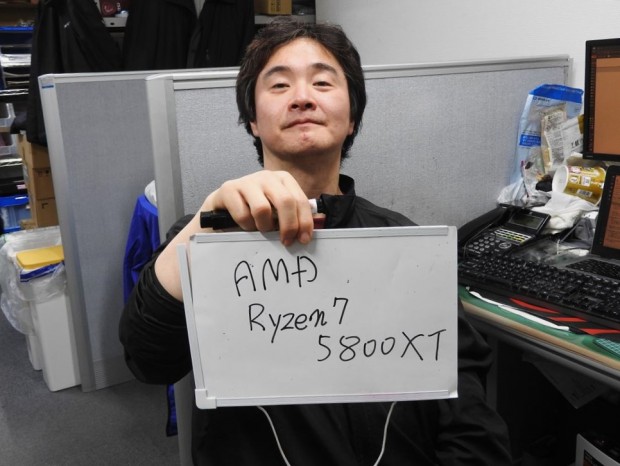 AMD
Ryzen 7
5800XT